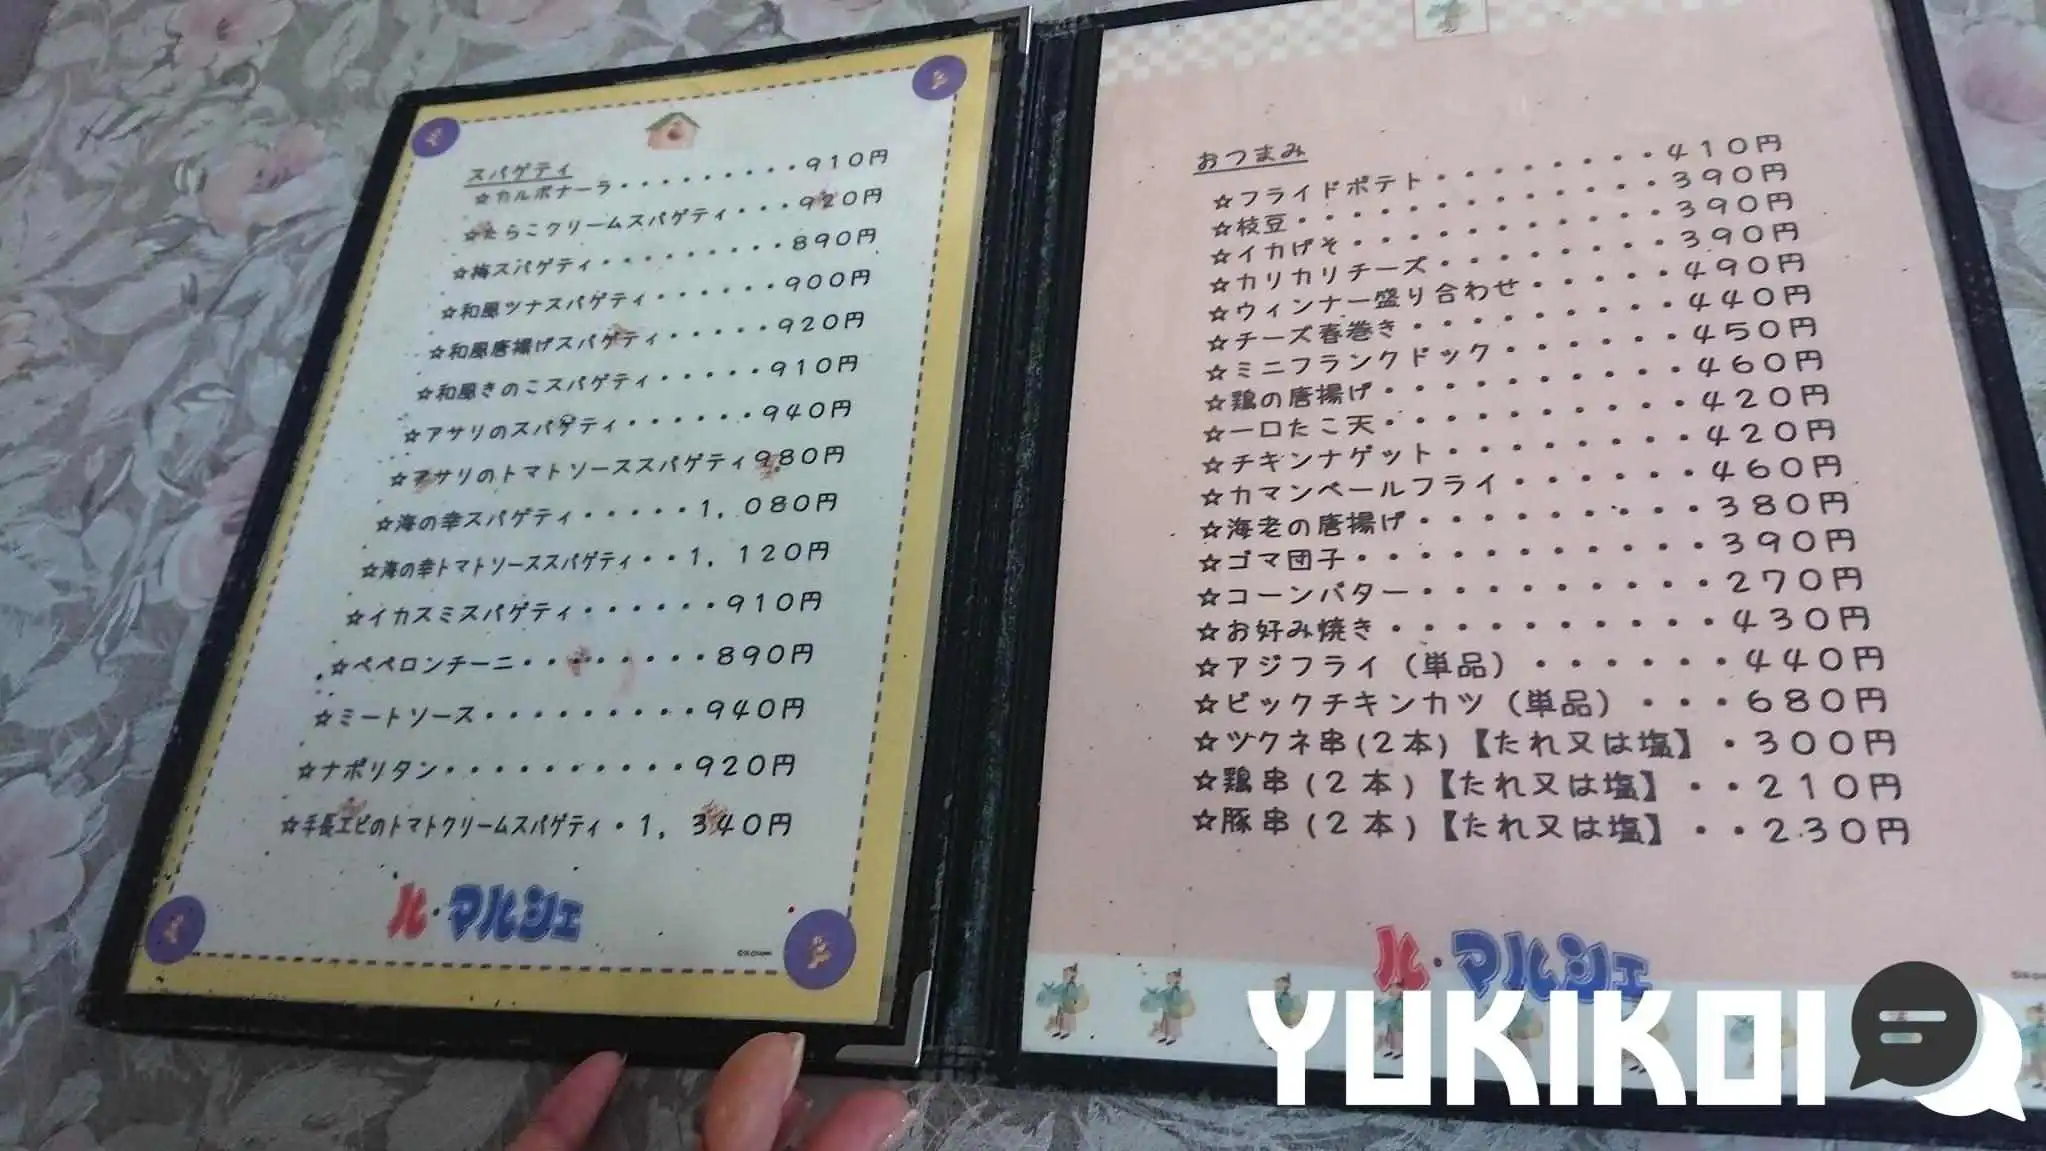 スパゲティ
☆カルボナーラ・・・・・・・・・910円
☆たらこクリームスパゲティ・・・920円
☆梅スパゲティ・・・・・・・・・890円
☆和風ツナスパゲティ・・・・・・900円
☆和風唐揚げスパゲティ・・・・・920円
☆和風きのこスパゲティ・・・・・910円
☆アサリのスパゲティ・・・・・・940円
☆アサリのトマトソーススパゲティ980円
☆海の幸スパゲティ・・・・・1,080円
☆海の幸トマトソーススパゲティ・・1,120円
☆イカスミスパゲティ・・・・・・910円
☆ペペロンチーニ・・・・・・・・890円
☆ミートソース・・・・・・・・・940円
☆ナポリタン・・・・・・・・・・920円
☆手長エビのトマトクリームスパゲティ・1,340円
ル・マルシェ
おつまみ
☆フライドポテト・・・・・・・・410円
☆枝豆・・・・・・・・・・・・・390円
☆イカげそ・・・・・・・・・・・390円
☆カリカリチーズ・・・・・・・・390円
☆ウィンナー盛り合わせ・・・・・490円
☆チーズ春巻き・・・・・・・・・440円
☆ミニフランクドック・・・・・・450円
☆鶏の唐揚げ・・・・・・・・・・460円
☆一口たこ天・・・・・・・・・・420円
☆チキンナゲット・・・・・・・・420円
☆カマンベールフライ・・・・・・460円
☆海老の唐揚げ・・・・・・・・・380円
☆ゴマ団子・・・・・・・・・・・390円
☆コーンバター・・・・・・・・・270円
☆お好み焼き・・・・・・・・・・430円
☆アジフライ(単品)・・・・・・440円
☆ビックチキンカツ(単品)・・・680円
☆ツクネ串(2本)【たれ又は塩】・300円
☆鶏串(2本)【たれ又は塩】・・210円
☆豚串(2本)【たれ又は塩】・・230円
ル・マルシェ
YUKIKOI